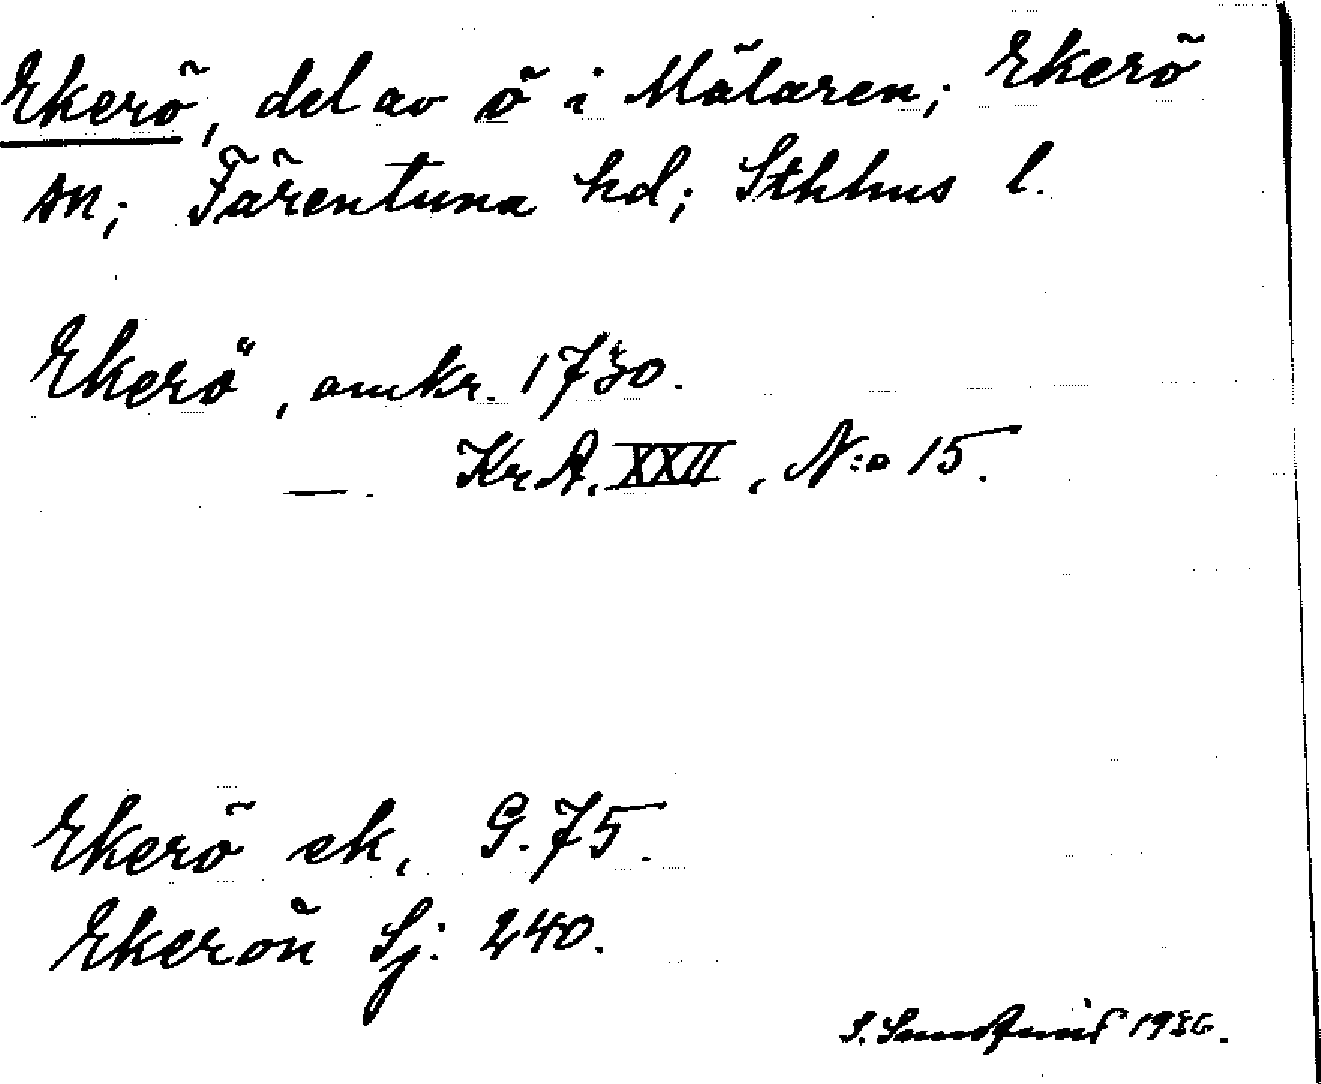 Ekerö, del av ö i Mälaren; Ekerö
sn; Färentuna hd; Sthlms l.
Ekerö, omkr. 1730.
— . Kr.A. XXII, N:o 15.
Ekerö ek, G. 75.
Ekerön Sj: 240.
S. 1936.